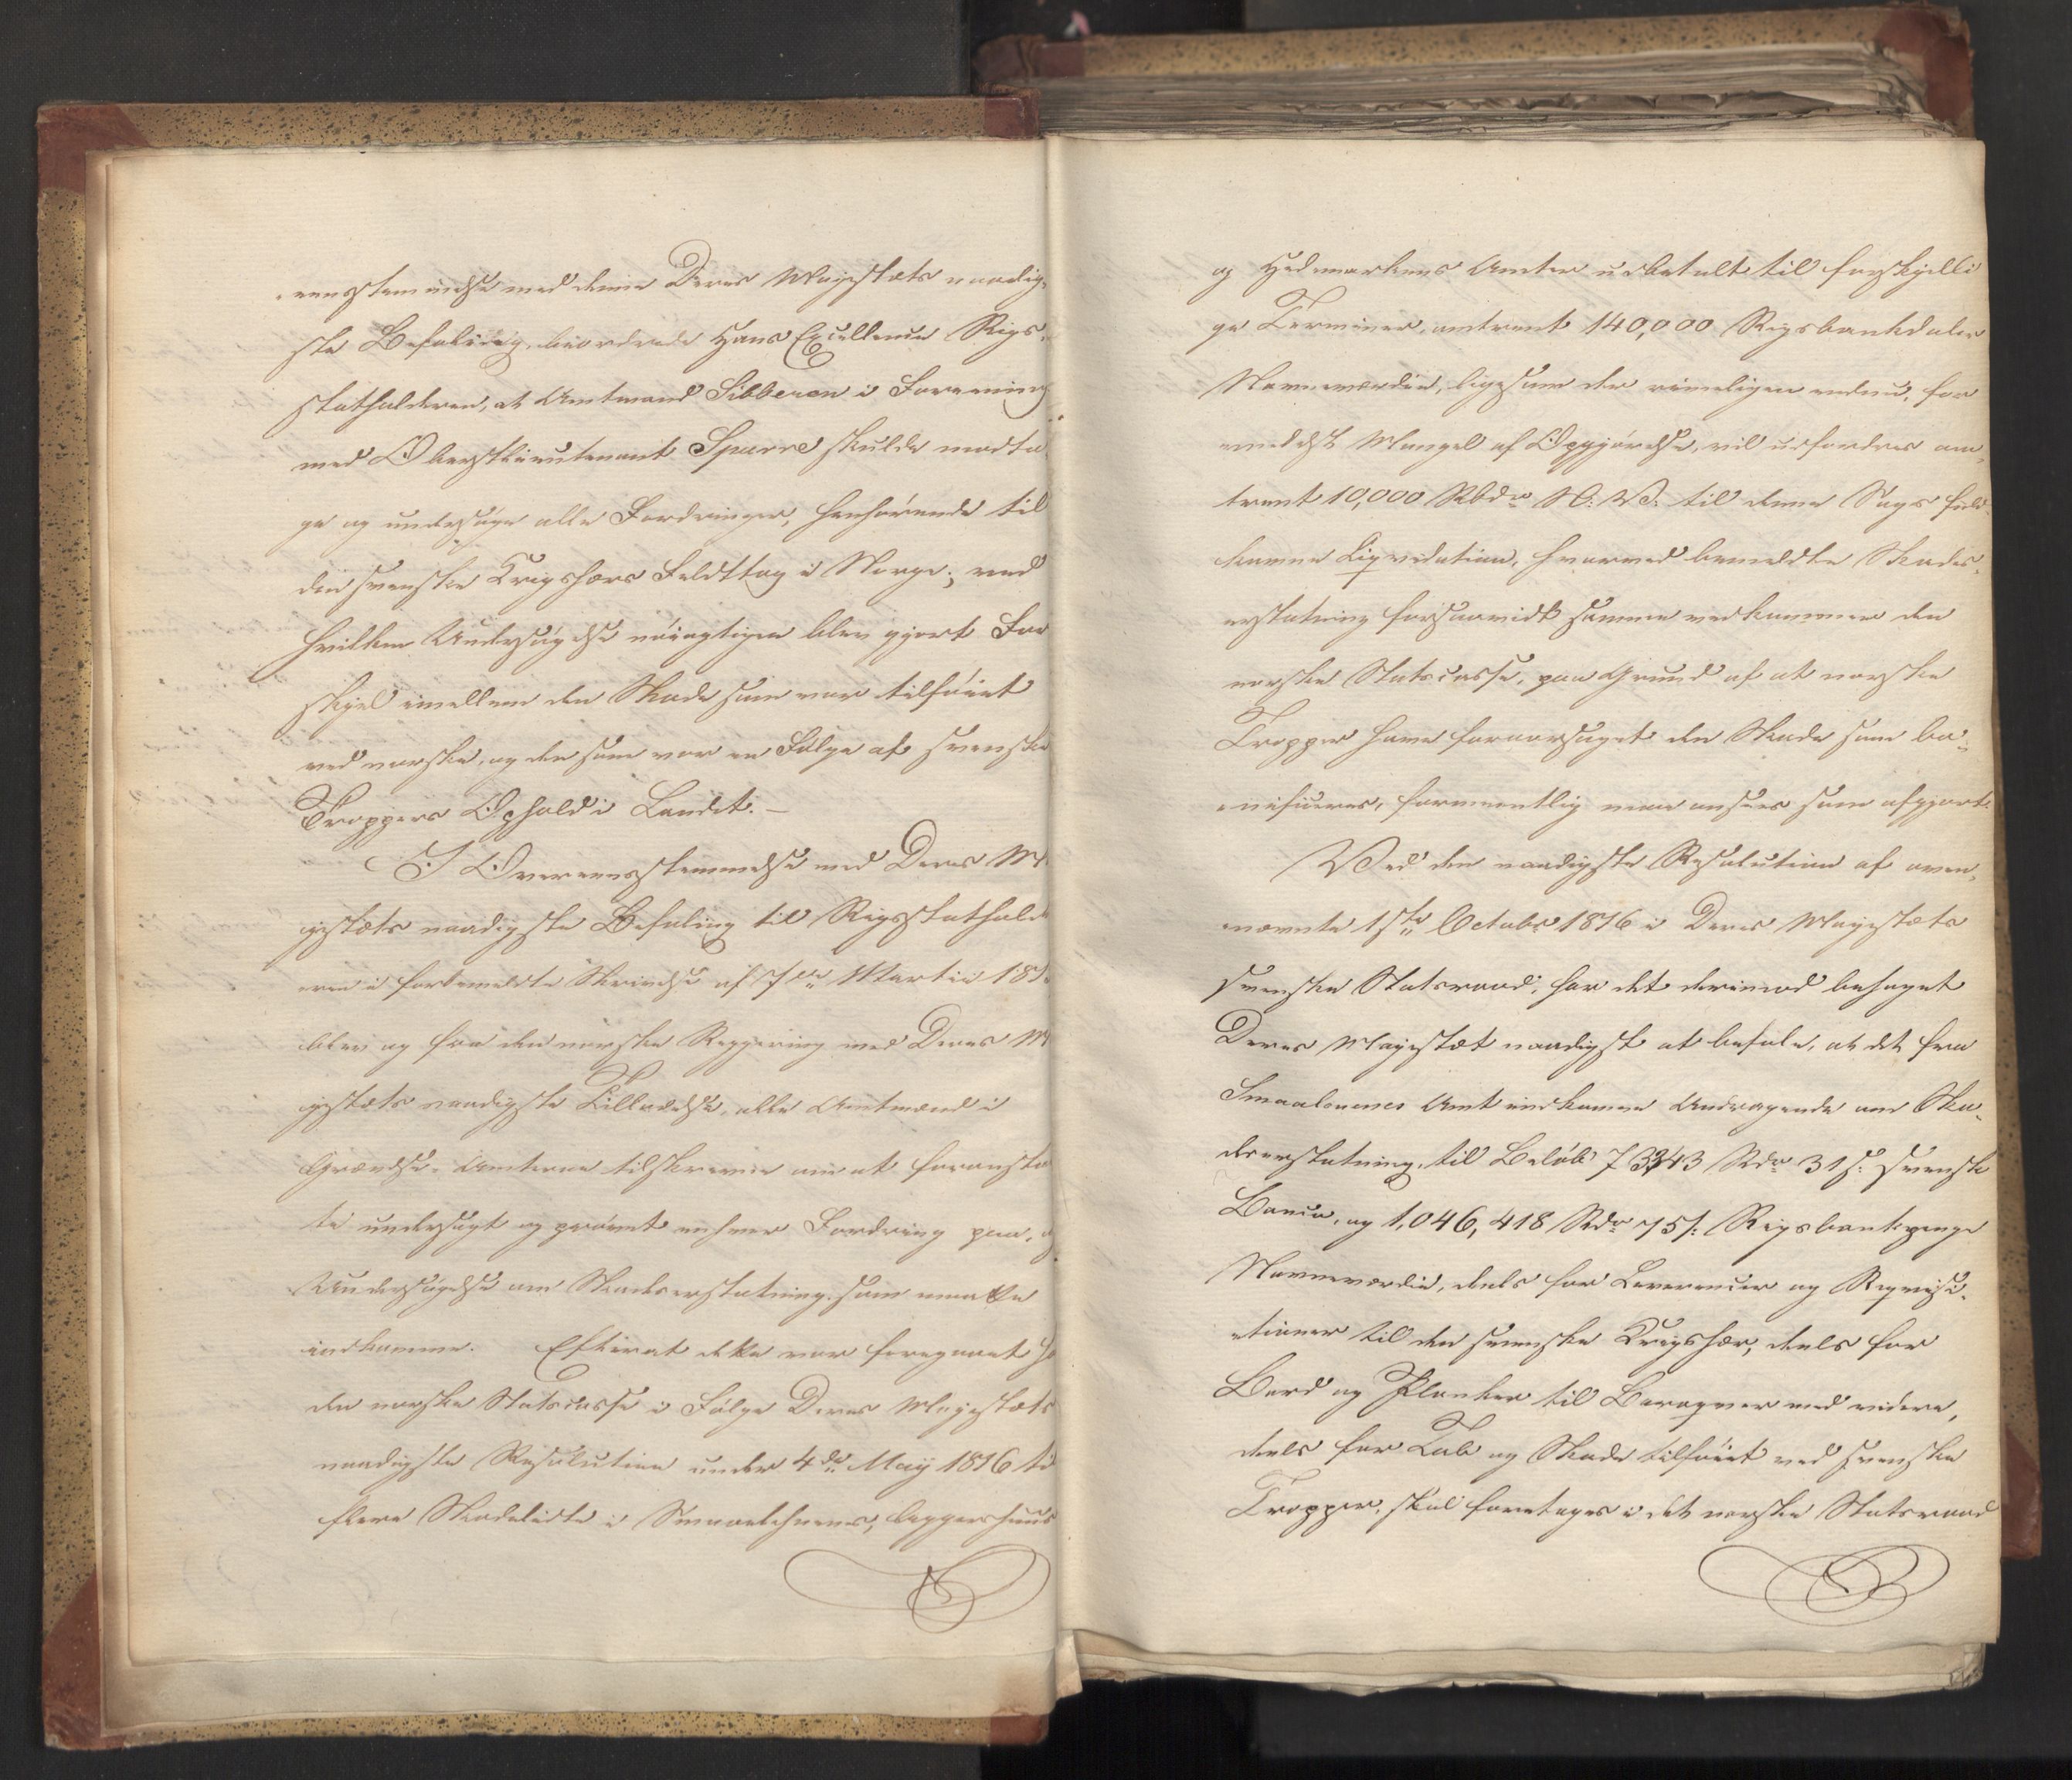 eensstemmelse med denne Deres Mayestæts naadig-
ste Befaling, beordrede Hans Excellence Rigs-
statholderen, at Amtmand Sibbern i Forening
med Oberstlieutenant Sparre skulde modta
ge og undersøge alle Fordringer, henhørende til
den svenske Krigshærs Feldttog i Norge; ved
hvilken Undersøgelse nöiagtigen blev gjort For
skjel imellem den Skade som var tilföiet
ved norske, og den som var en Fölge af svenske
Troppers Ophold i Landet.—
I Overeensstemmelse med Deres Ma
jestæts naadigste Befaling til Rigsstathold
eren i fortemeldte Skrivelse af 7de Martii 181
blev og fra den norske Regjering med Deres Ma
jestæts naadigste Tilladelse, alle Amtmænd i
Grændse-Amterne tilskrevne om at foransta
te undersøgt og prövet enhver Fordring paa, og
Undersögelse om Skadeserstatning, som maatte
indkomme. Efterat dette var foregaaet ha
den norske Statscasse i Fölge Deres Mayestæts
naadigste Resolution under 4de May 1816 til
flere Skadelidte i Smaalehnenes, Aggershuus
og Hedemarkens Amter udbetalt til forskjelli
ge Terminer, omtrent 140,000 Rigsbankdaler
Navneværdie, ligesom der rimeligen endnu, for
medelst Mangel af Opgjörelse, vil udfordres om-
trent 10,000 Rbdr N: V: til denne Sags fuld-
komne Liqvidation, hvormed bemeldte Skades-
erstatning forsaavidt samme vedkommer den
norske Statscasse, paa Grund af at norske
Tropper have foraarsaget den Skade som bo-
nificeres, formeentlig maa ansees som afgjort.
Ved den naadigste Resolution af oven-
nævnte 1ste Octobr 1816 i Deres Mayestæts
svenske Statsraad, har det derimod behaget
Deres Mayestæt naadigst at befale, at det fra
Smaalenenes Amt indkomne Andragende om Ska-
deserstatning, til Belöb 73343 Rdr 31 s: svensk
Banco, og 1,046,418 Rdr 75 s: Rigsbankpenge
Navneværdie, deels for Leverencer og Reqvisi-
tioner til den svenske Krigshær, deels for
Bord og Planker til Baraqver med videre,
deels for Tab og Skade tilföiet ved svenske
Tropper, skal foretages i det norske Statsraad